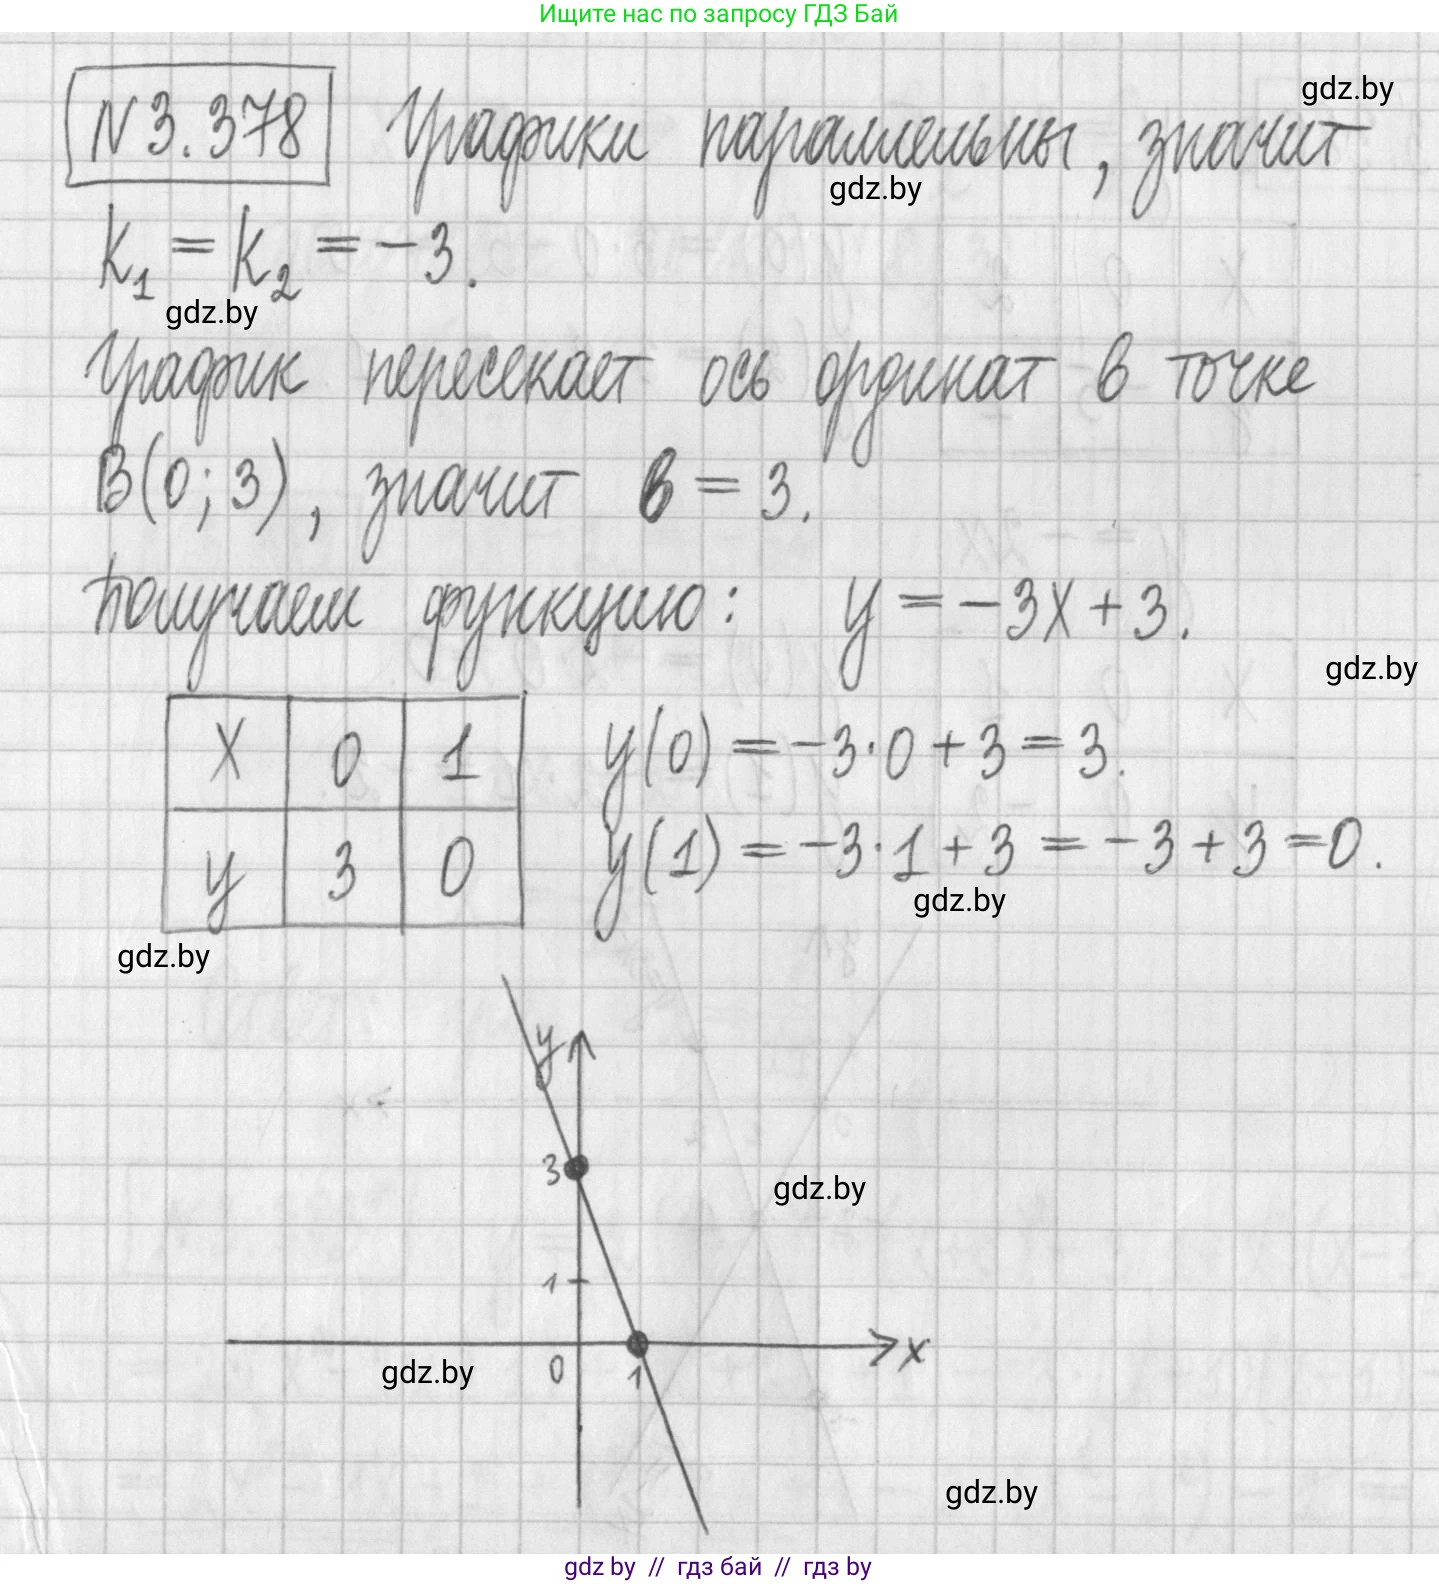 Ищите нас по запросу ГДЗ Бай
gdz.by
N 3.378 Графики параллельны, значит
gdz.by
K₁ = K₂ = -3.
gdz.by
График пересекает ось ординат в точке
B(0; 3), значит b = 3.
Получаем функцию: y = -3x + 3.
gdz.by
x 0 1 y(0) = -3·0 + 3 = 3.
y 3 0 y(1) = -3·1 + 3 = -3 + 3 = 0.
gdz.by
gdz.by
y
3
gdz.by
1
0 1 x
gdz.by
gdz.by
gdz.by // гдз бай // гдз by